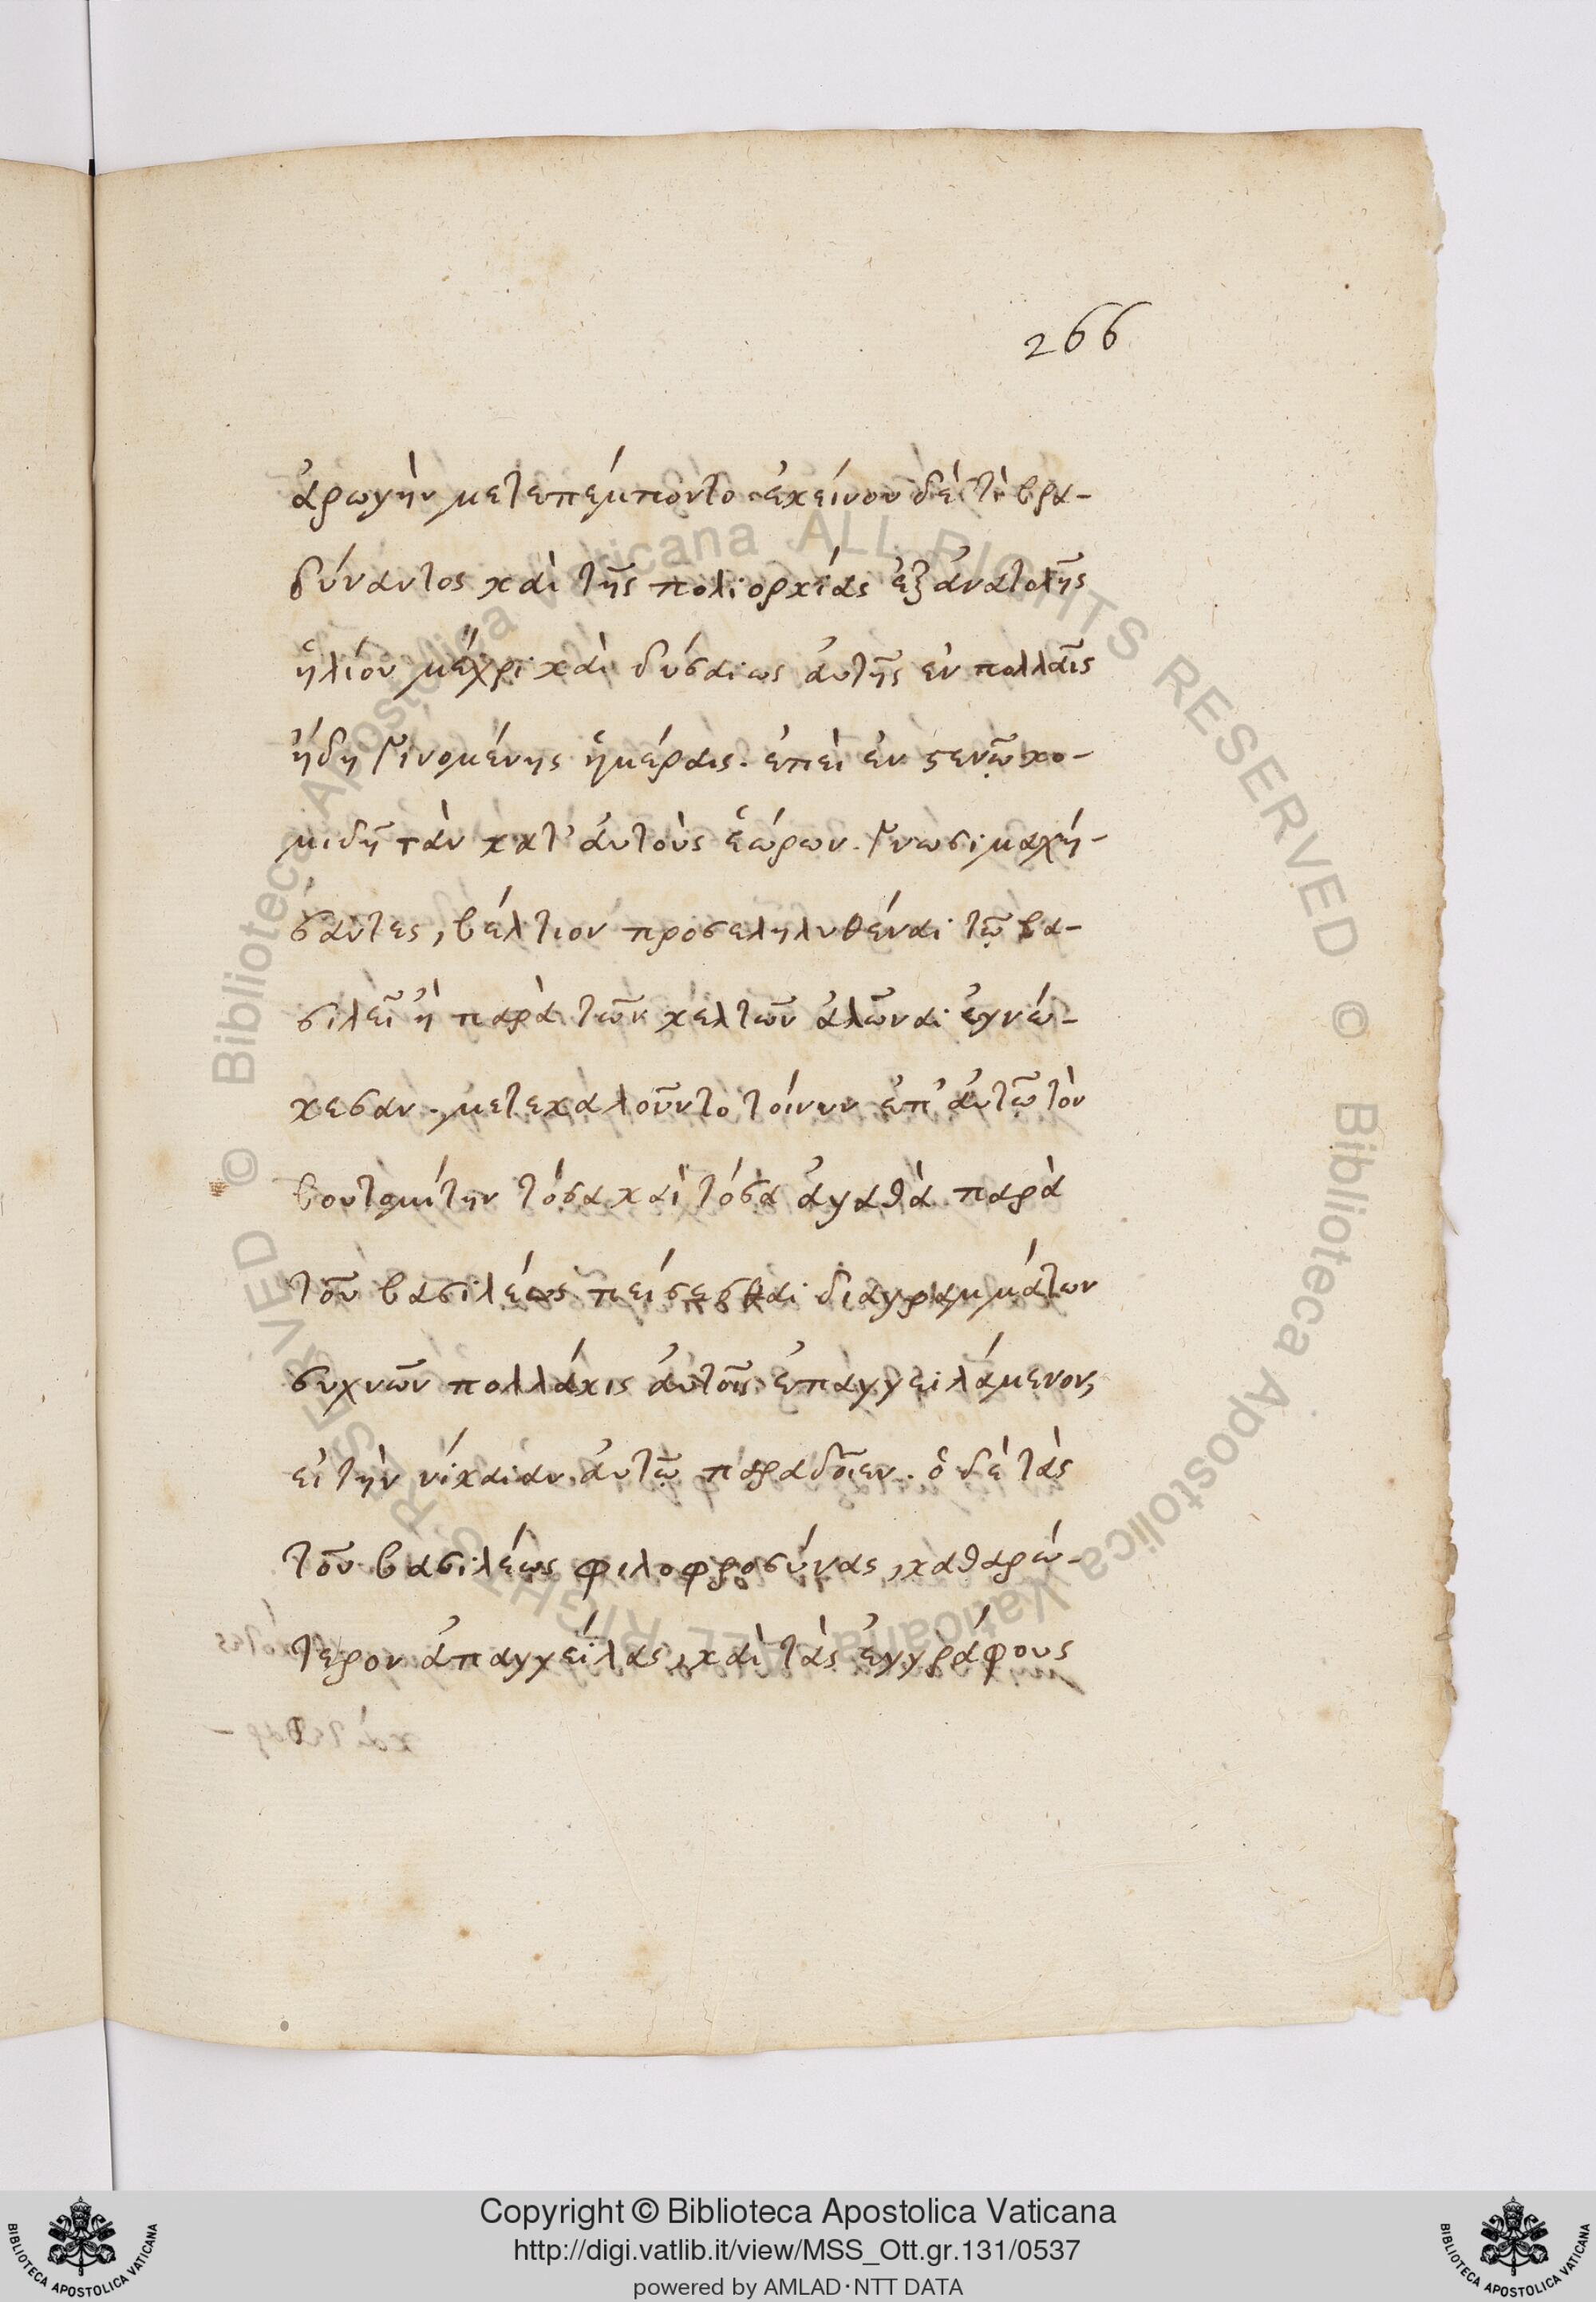 266
ἀρωγὴν μετεπέμποντο. ἐκείνου δὲ ἔτι βρα-
δύναντος καὶ τῆς πολιορκίας ἐξ ἀνατολῆς
ἡλίου μέχρι καὶ δύσαιως αὐτῆς ἐν πολλαῖς
ἤδη γινομένης ἡμέραις. ἐπεὶ ἐν στενῷ κο-
μιδῆ τὰν κατ' αὐτοὺς ἑώρων. γνωσιμαχή-
σαντες, βέλτιον προσεληλυθέναι τῷ βα-
σιλεῖ ἢ παρὰ τῶν κελτῶν ἁλῶναι ἐγνώ-
κεσαν. μετεκαλοῦντο τοίνυν ἐπ' αὐτῷ τὸν
βουτομίτην τόσα καὶ τόσα ἀγαθὰ παρὰ
τοῦ βασιλέως πείσεσθαι διαγραμμάτων
συχνῶν πολλάκις αὐτοῖς ἐπαγγειλάμενον,
εἰ τὴν νίκαιαν αὐτῷ παραδοῖεν. ὁ δὲ τὰς
τοῦ βασιλέως φιλοφροσύνας, καθαρώ-
τερον ἀπαγγείλας, καὶ τὰς ἐγγράφους
Copyright © Biblioteca Apostolica Vaticana
http://digi.vatlib.it/view/MSS_Ott.gr.131/0537
powered by AMLAD·NTT DATA
BIBLIOTECA APOSTOLICA VATICANA
BIBLIOTECA APOSTOLICA VATICANA
© Biblioteca Apostolica Vaticana ALL RIGHTS RESERVED
© Biblioteca Apostolica Vaticana ALL RIGHTS RESERVED